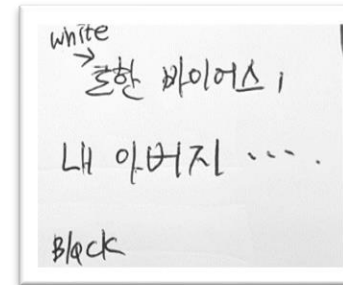 white
→
흔한 바이어스 ;
내 아버지 ....
Black